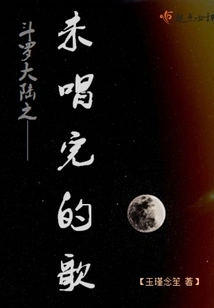 斗罗大陆之——
未唱完的歌
【玉瑾念笙 著】